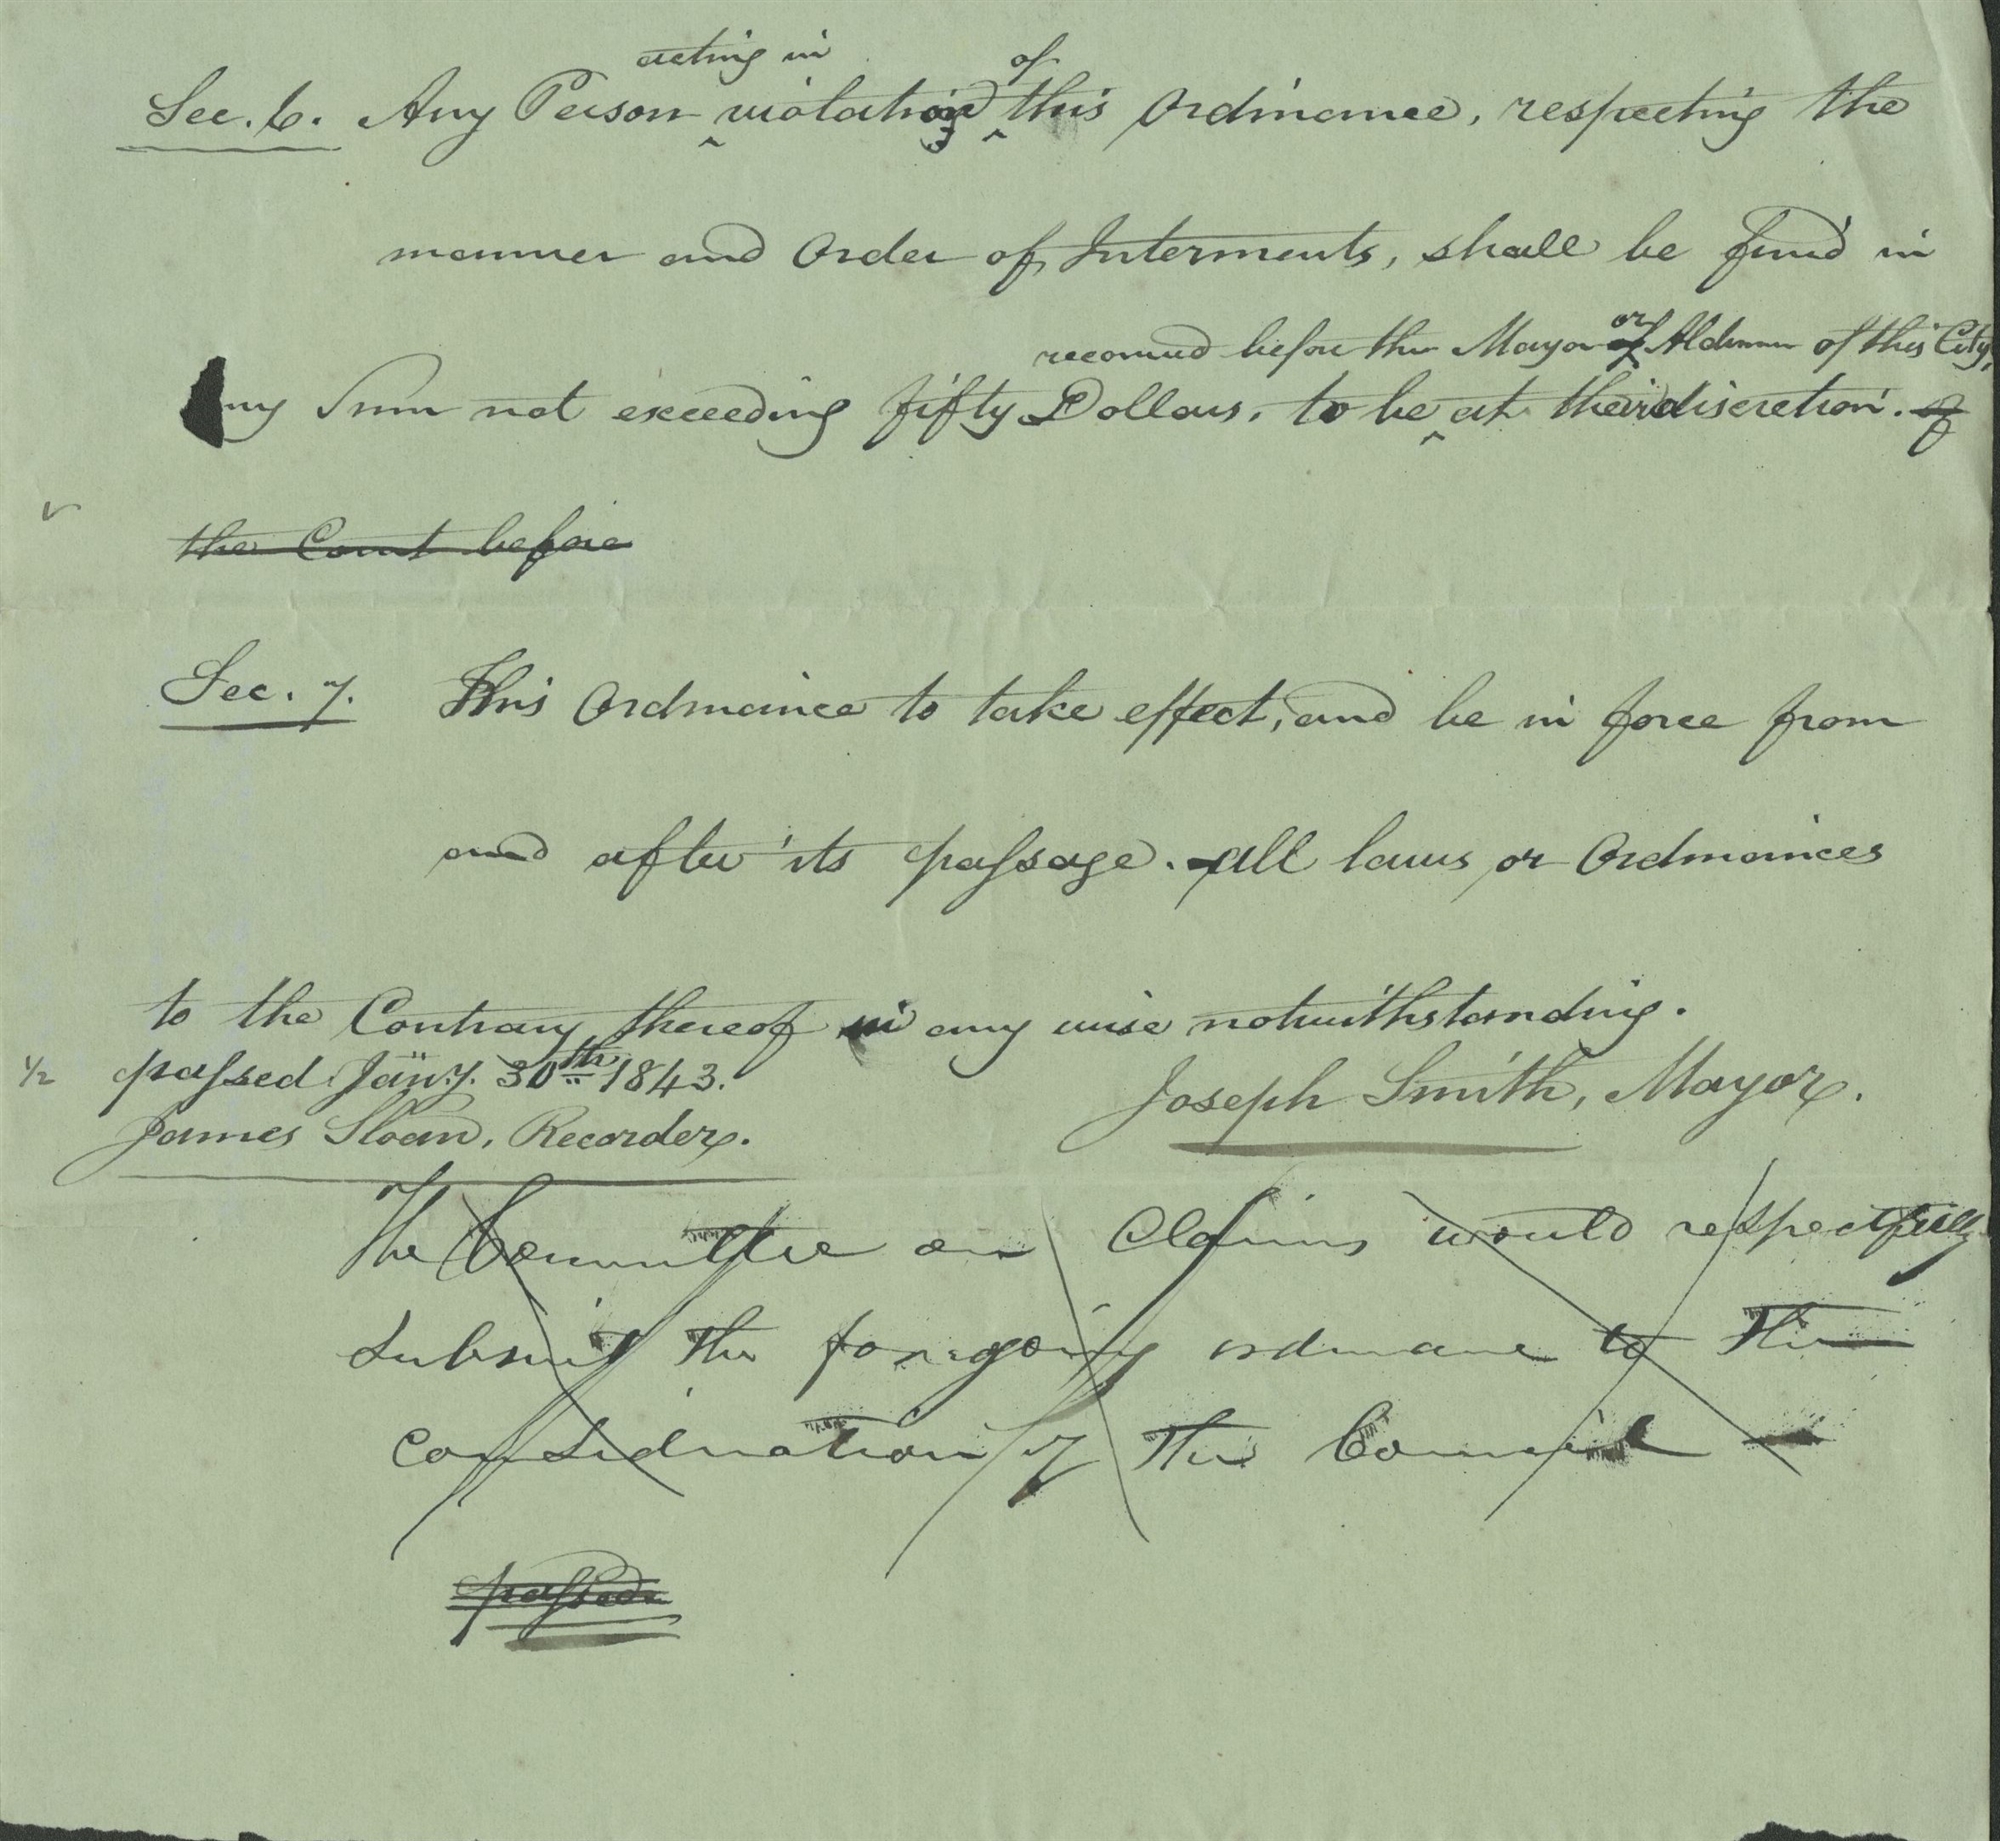 acting in of
Sec. 6. Any Person violation this Ordinance, respecting the
manner and Order of Interments, shall be fined in
recovered before the Mayor or Aldermen of this City,
ny Sum not exceeding fifty Dollars, to be at their discretion. of
the Court before
Sec. 7. This Ordinance to take effect, and be in force from
and after its passage. all laws or Ordinances
to the Contrary thereof in any wise notwithstanding.
1/2 passed Jany. 30th 1843.
Joseph Smith, Mayor.
James Sloan, Recorder.
The Committee on Claims would respectfully
submit the foregoing ordinance to the
consideration of the Council
passed